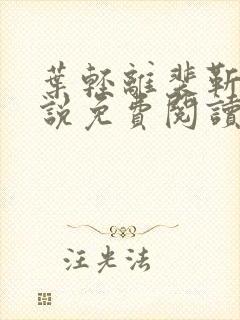 葉輕離裴靳
說免費閱讀
汪光法